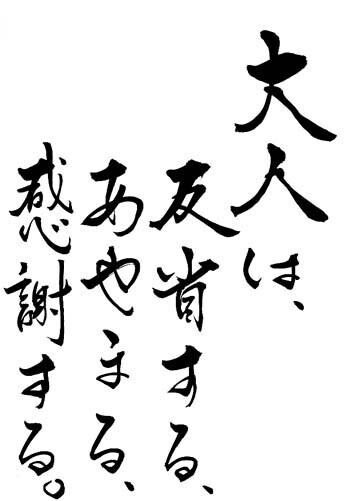 大人は、
反省する、
あやまる、
感謝する。